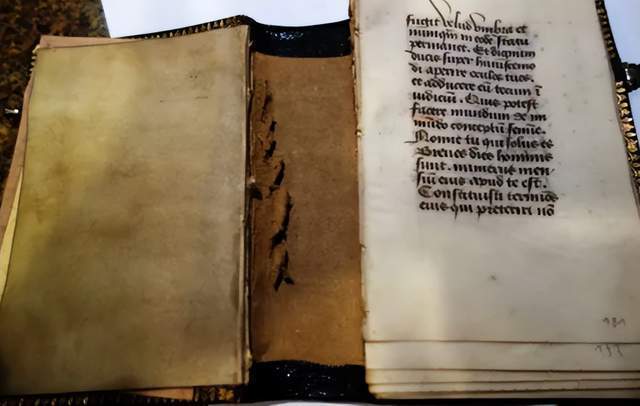 fugit velud vmbra et
nunqm̄ in eodē statu
permanet. Et dignum
ducis super huiuscemo
di aperire oculos tuos.
et adducere eū tecum ī
iudiciū. Quis potest
facere mundum de im
mūdo conceptū semīe.
Nonne tu qui solus es
Breues dies hominis
sunt. numerus men
siū eius apud te est.
Constituisti terminos
eius qui preteriri nō
191